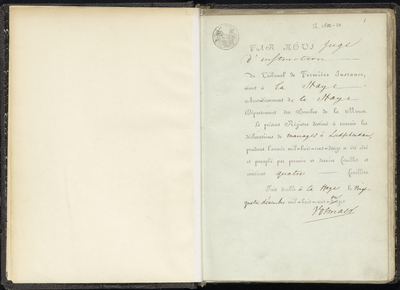 1
PAR NOUS Juge
d'instruction
Du Tribunal de Première Instance,
séant à La Haye
Arrondissement de la Haye
Département des Bouches de la Meuse
Le présent Régistre destiné à inscrire les
déclarations de mariages à
pendant l'année mil-huit-cent-douze a été côté
et paraphé par premier et dernier feuillet et
contient quatre feuillets
Fait double à La Haye le vingt
quatre décembre mil-huit-cent-onze